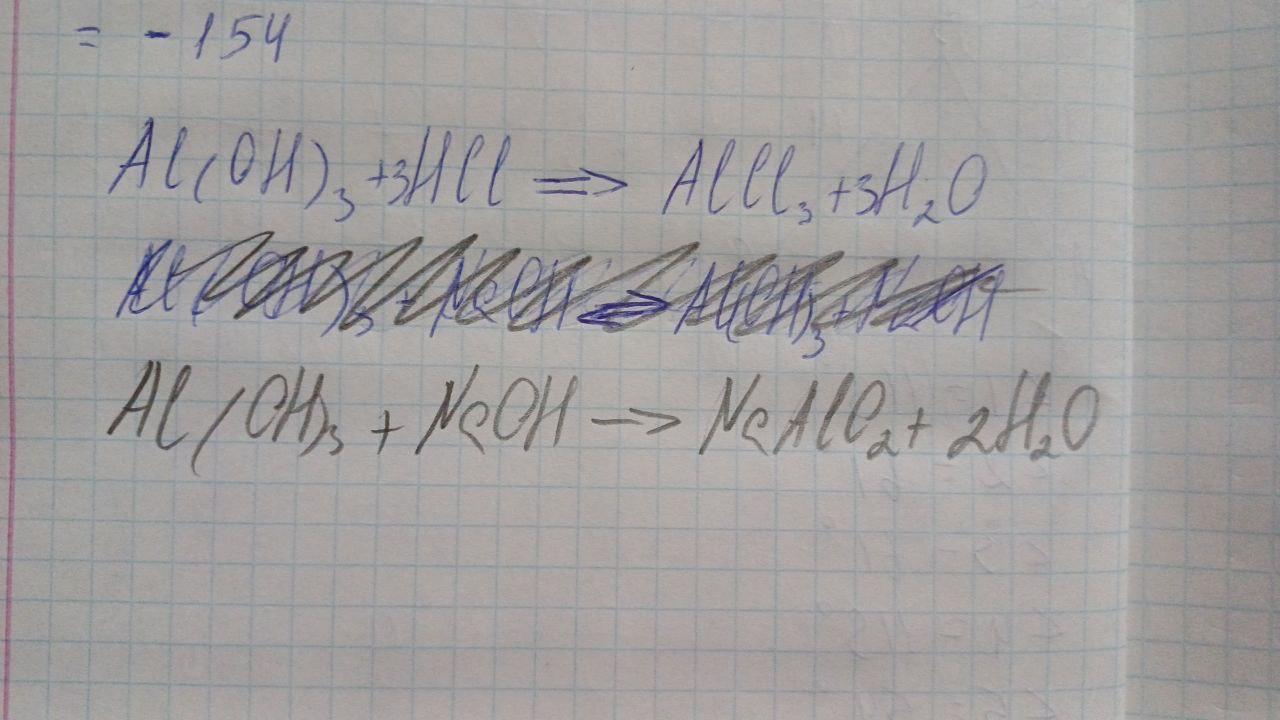 = - 154
Al(OH)₃ + 3HCl => AlCl₃ + 3H₂O
Al(OH)₃ + NaOH -> NaAlO₂ + 2H₂O